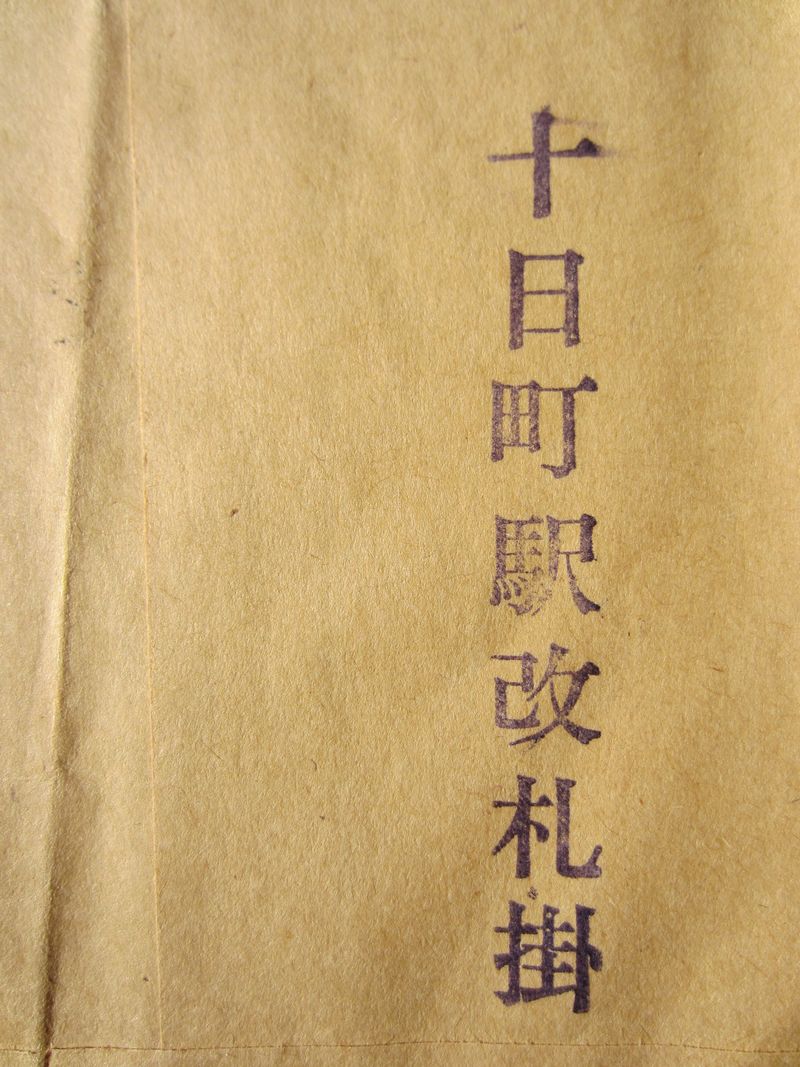 十日町駅改札掛